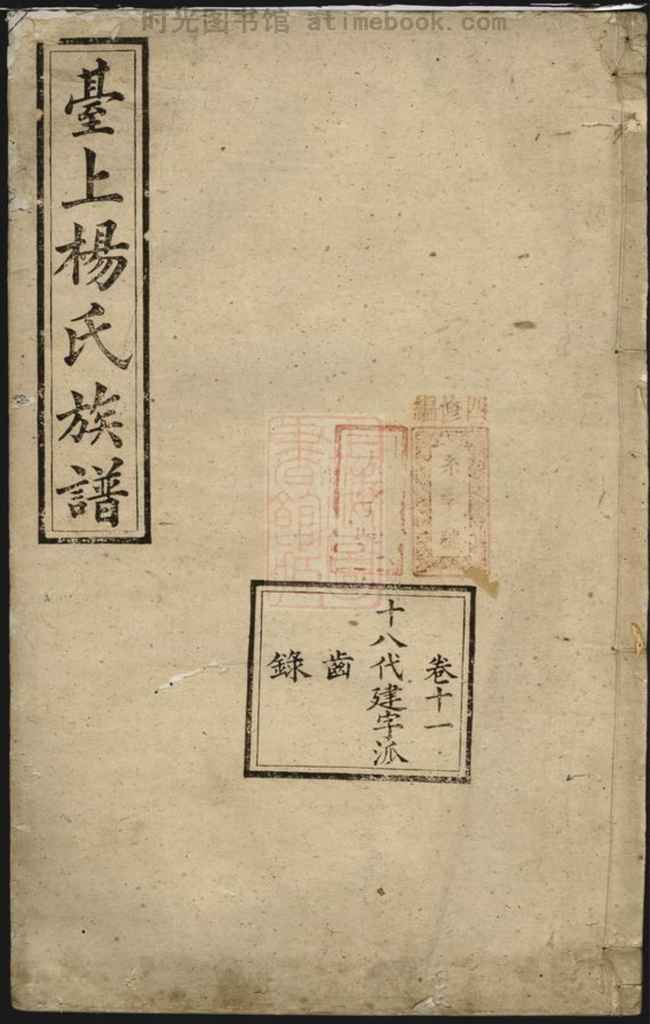 时光图书馆 atimebook.com
臺上楊氏族譜
四修編
卷十一
十八代建字派
齒
錄